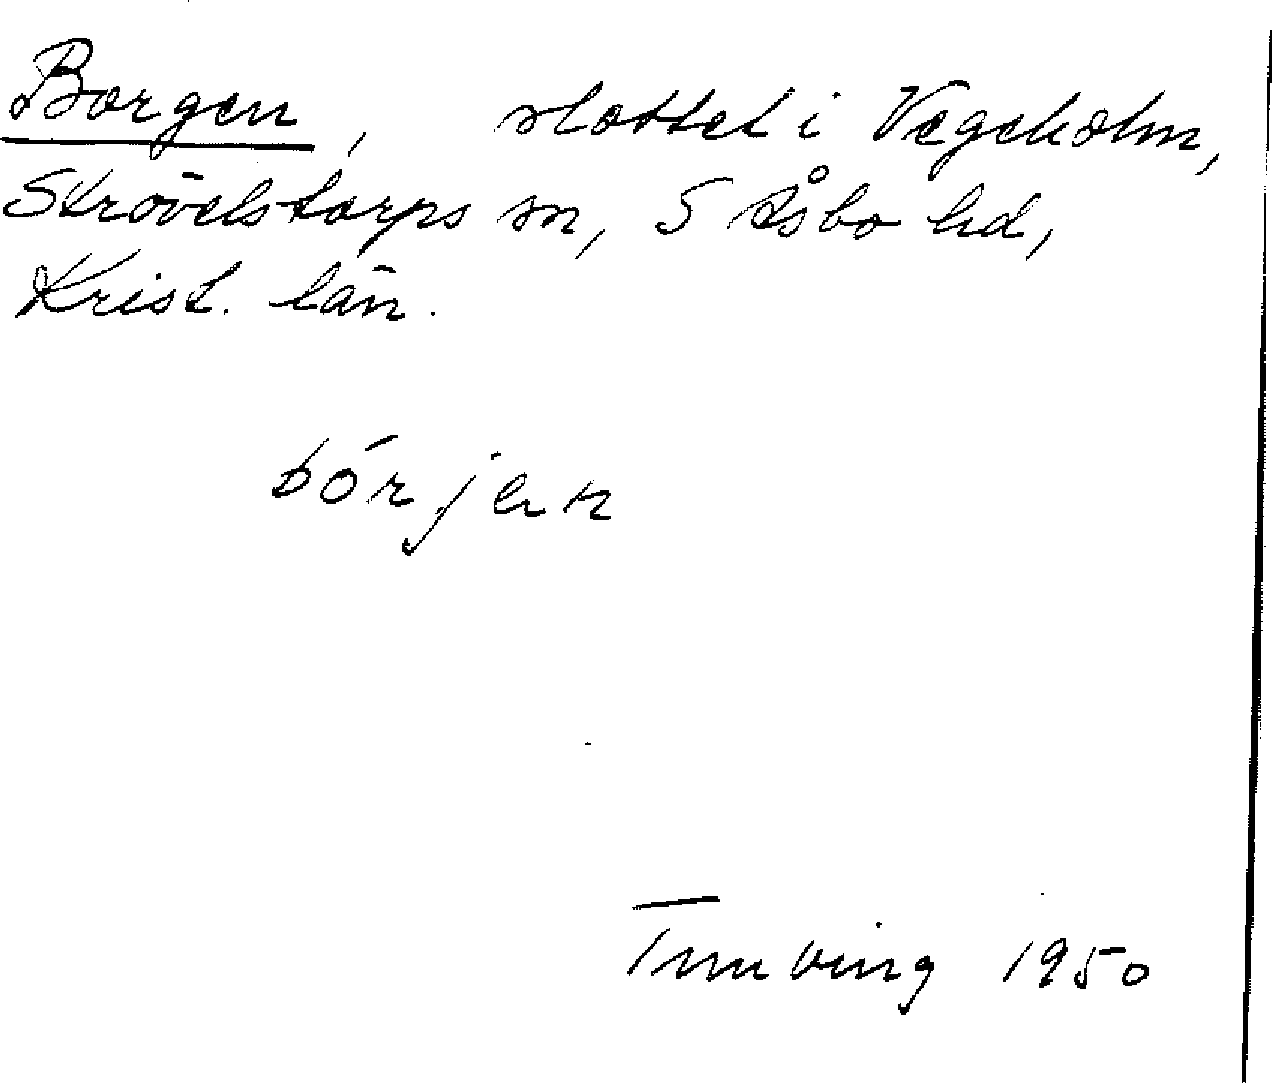 Borgen, slottet i Vegeholm,
Strövelstorps sn, S Åsbo hd,
Krist. län.
bórjen
1950